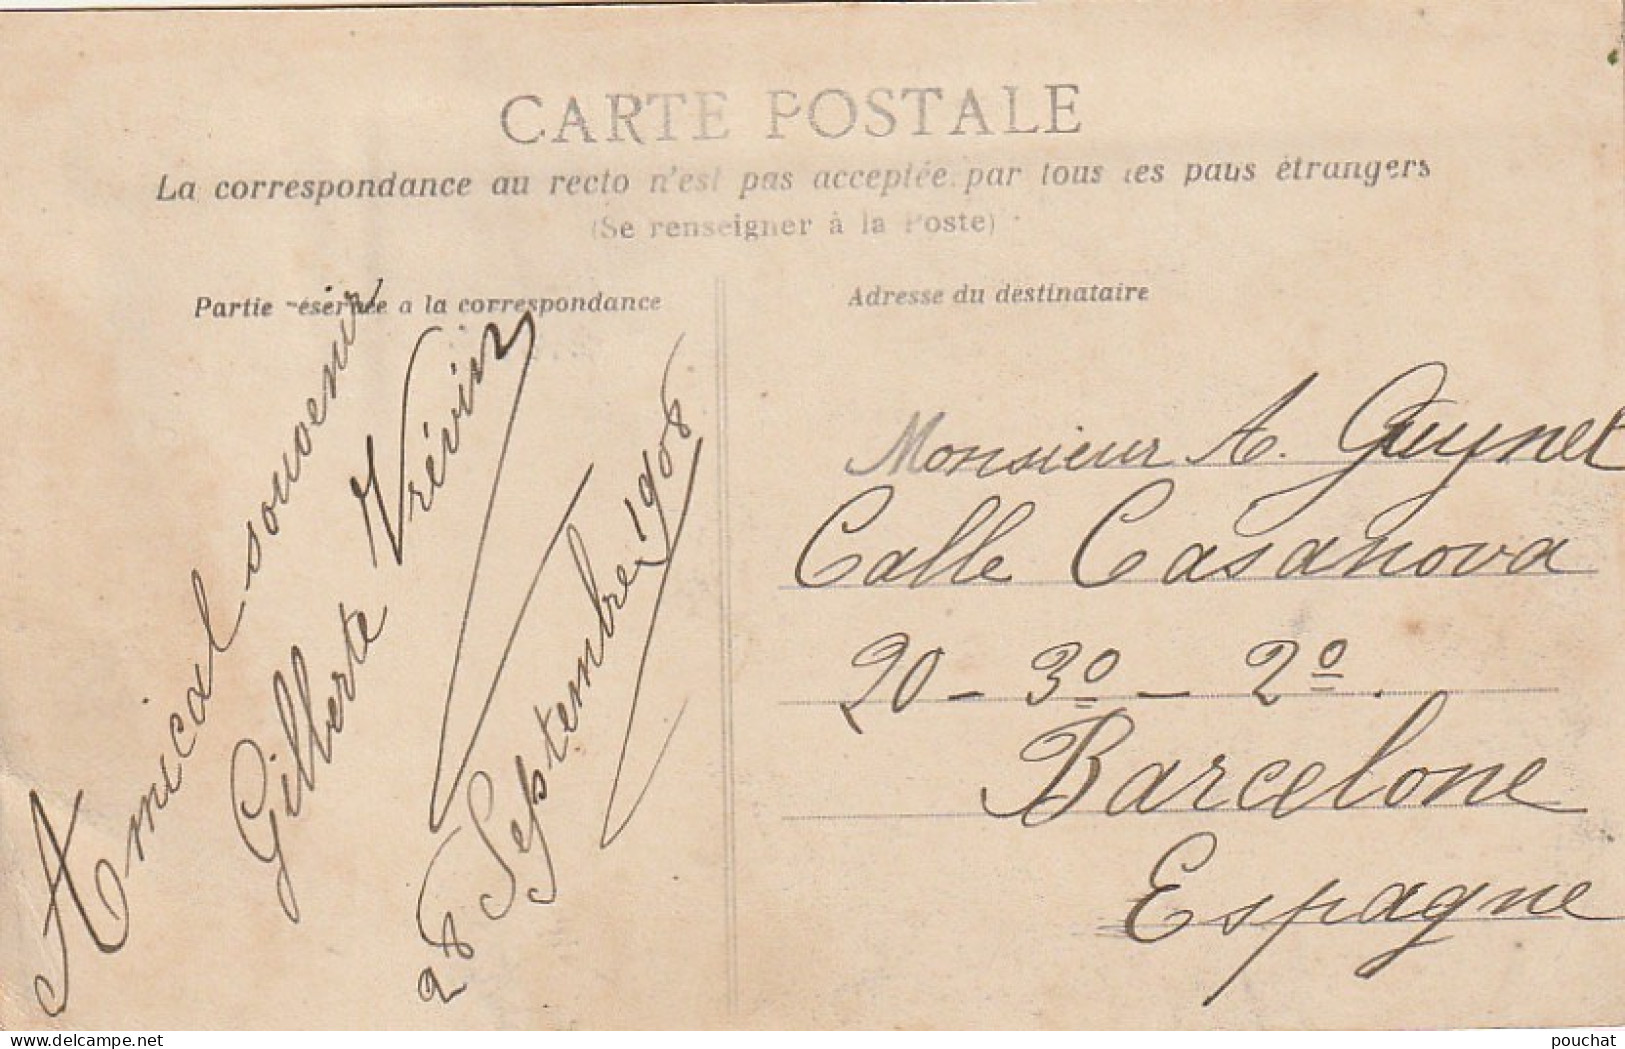 CARTE POSTALE
La correspondance au recto n'est pas acceptée par tous les pays étrangers
(Se renseigner à la Poste)
Partie réservée a la correspondance
Amical souvenir
Gilberte Vrévin
28 Septembre 1908
Adresse du destinataire
Monsieur A. Guynet
Calle Casanova
20 - 3º - 2º.
Barcelone
Espagne
delcampe.net
pouchat